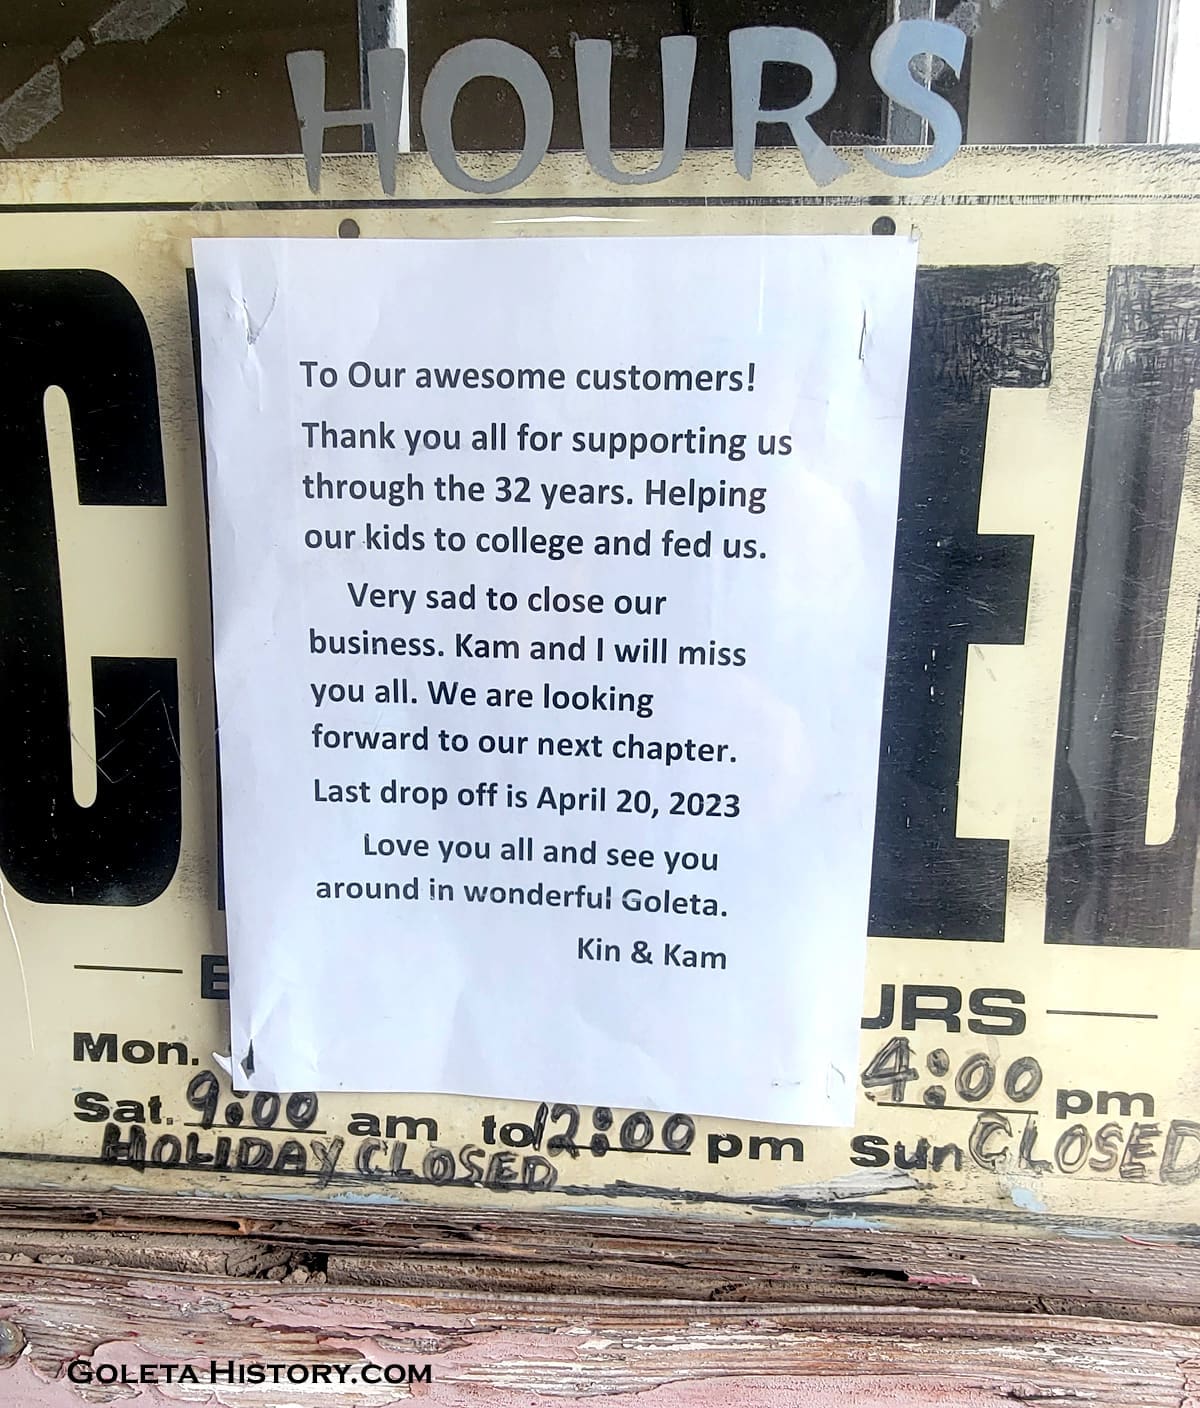 HOURS
To Our awesome customers!
Thank you all for supporting us
through the 32 years. Helping
our kids to college and fed us.
Very sad to close our
business. Kam and I will miss
you all. We are looking
forward to our next chapter.
Last drop off is April 20, 2023
Love you all and see you
around in wonderful Goleta.
Kin & Kam
Mon. 4:00 pm
Sat. 9:00 am to 12:00 pm Sun CLOSED
HOLIDAY CLOSED
GOLETA HISTORY.COM